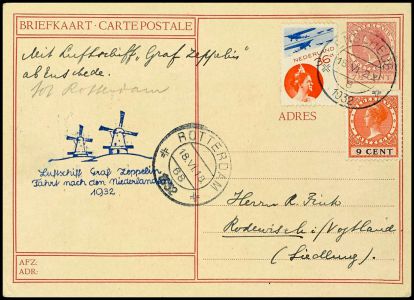 BRIEFKAART - CARTE POSTALE
Mit Luftschiff „Graf Zeppelin"
ab Enschede.
bis Rotterdam
NEDERLAND
36
CENT
1932
ADRES
9 CENT
ROTTERDAM
18 VI 18
68
1932
Luftschiff Graf Zeppelin
Fahrt nach den Niederlanden
1932
Herrn R. Fink
Rodewisch i/Vogtland
(Siedlung).
AFZ:
ADR: